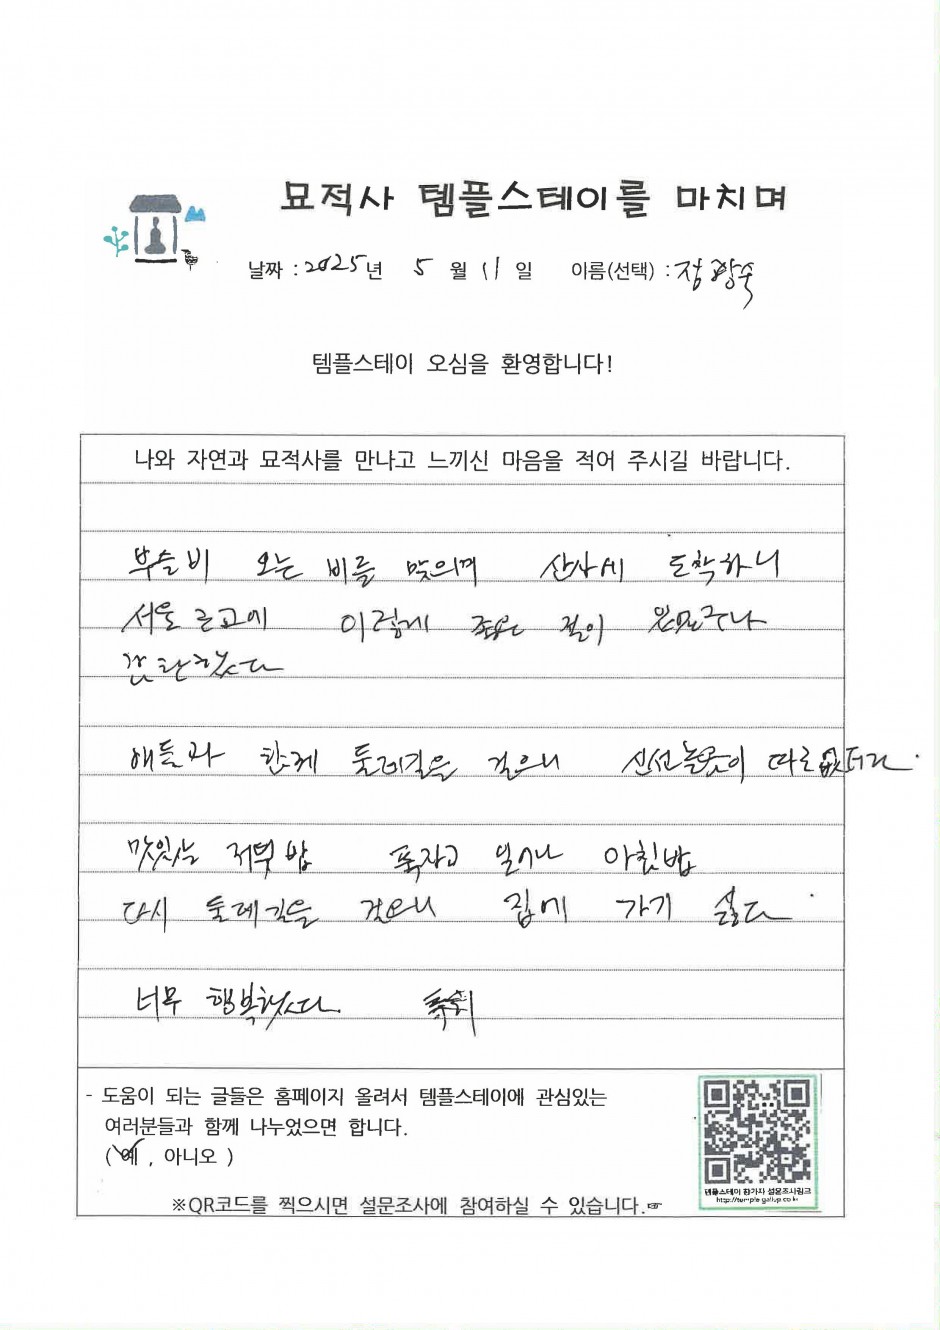 묘적사 템플스테이를 마치며
날짜 : 2025년 5 월 11 일 이름(선택) : 정광숙
템플스테이 오심을 환영합니다!
나와 자연과 묘적사를 만나고 느끼신 마음을 적어 주시길 바랍니다.
부슬비 오는 비를 맞으며 산사에 도착하니
서울 근교에 이렇게 좋은 절이 있었구나
감탄했다
애들과 함께 둘레길을 걸으니 신선놀음이 따로 없더라.
맛있는 저녁 밥 푹자고 일어나 아침밥
다시 둘레길을 걸으니 집에 가기 싫다.
너무 행복했다.
- 도움이 되는 글들은 홈페이지 올려서 템플스테이에 관심있는
여러분들과 함께 나누었으면 합니다.
( 예 , 아니오 )
※QR코드를 찍으시면 설문조사에 참여하실 수 있습니다.☞
템플스테이 참가자 설문조사링크
http://temple.gallup.co.kr